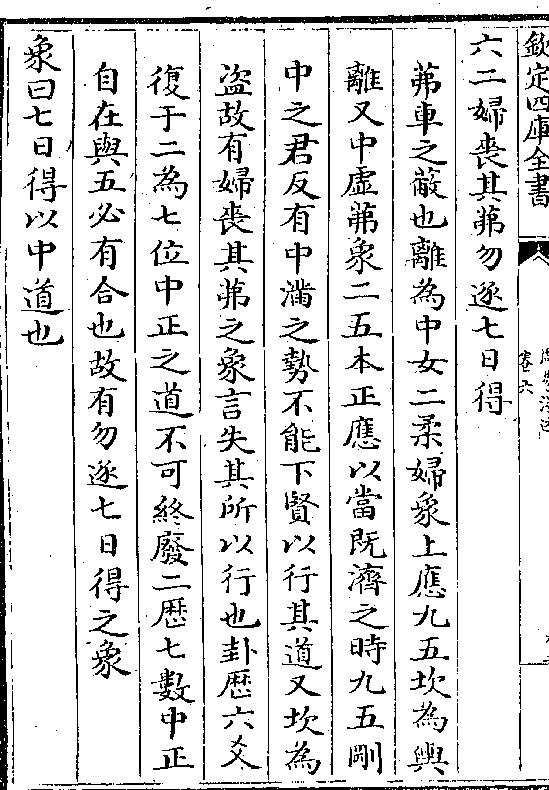 欽定四庫全書
卷六
六二婦喪其茀勿逐七日得
茀車之蔽也離為中女二柔婦象上應九五坎為輿
離又中虛茀象二五本正應以當既濟之時九五剛
中之君反有中滿之勢不能下賢以行其道又坎為
盜故有婦喪其茀之象言失其所以行也卦歴六爻
復于二為七位中正之道不可終廢二歴七數中正
自在與五必有合也故有勿逐七日得之象
象曰七日得以中道也